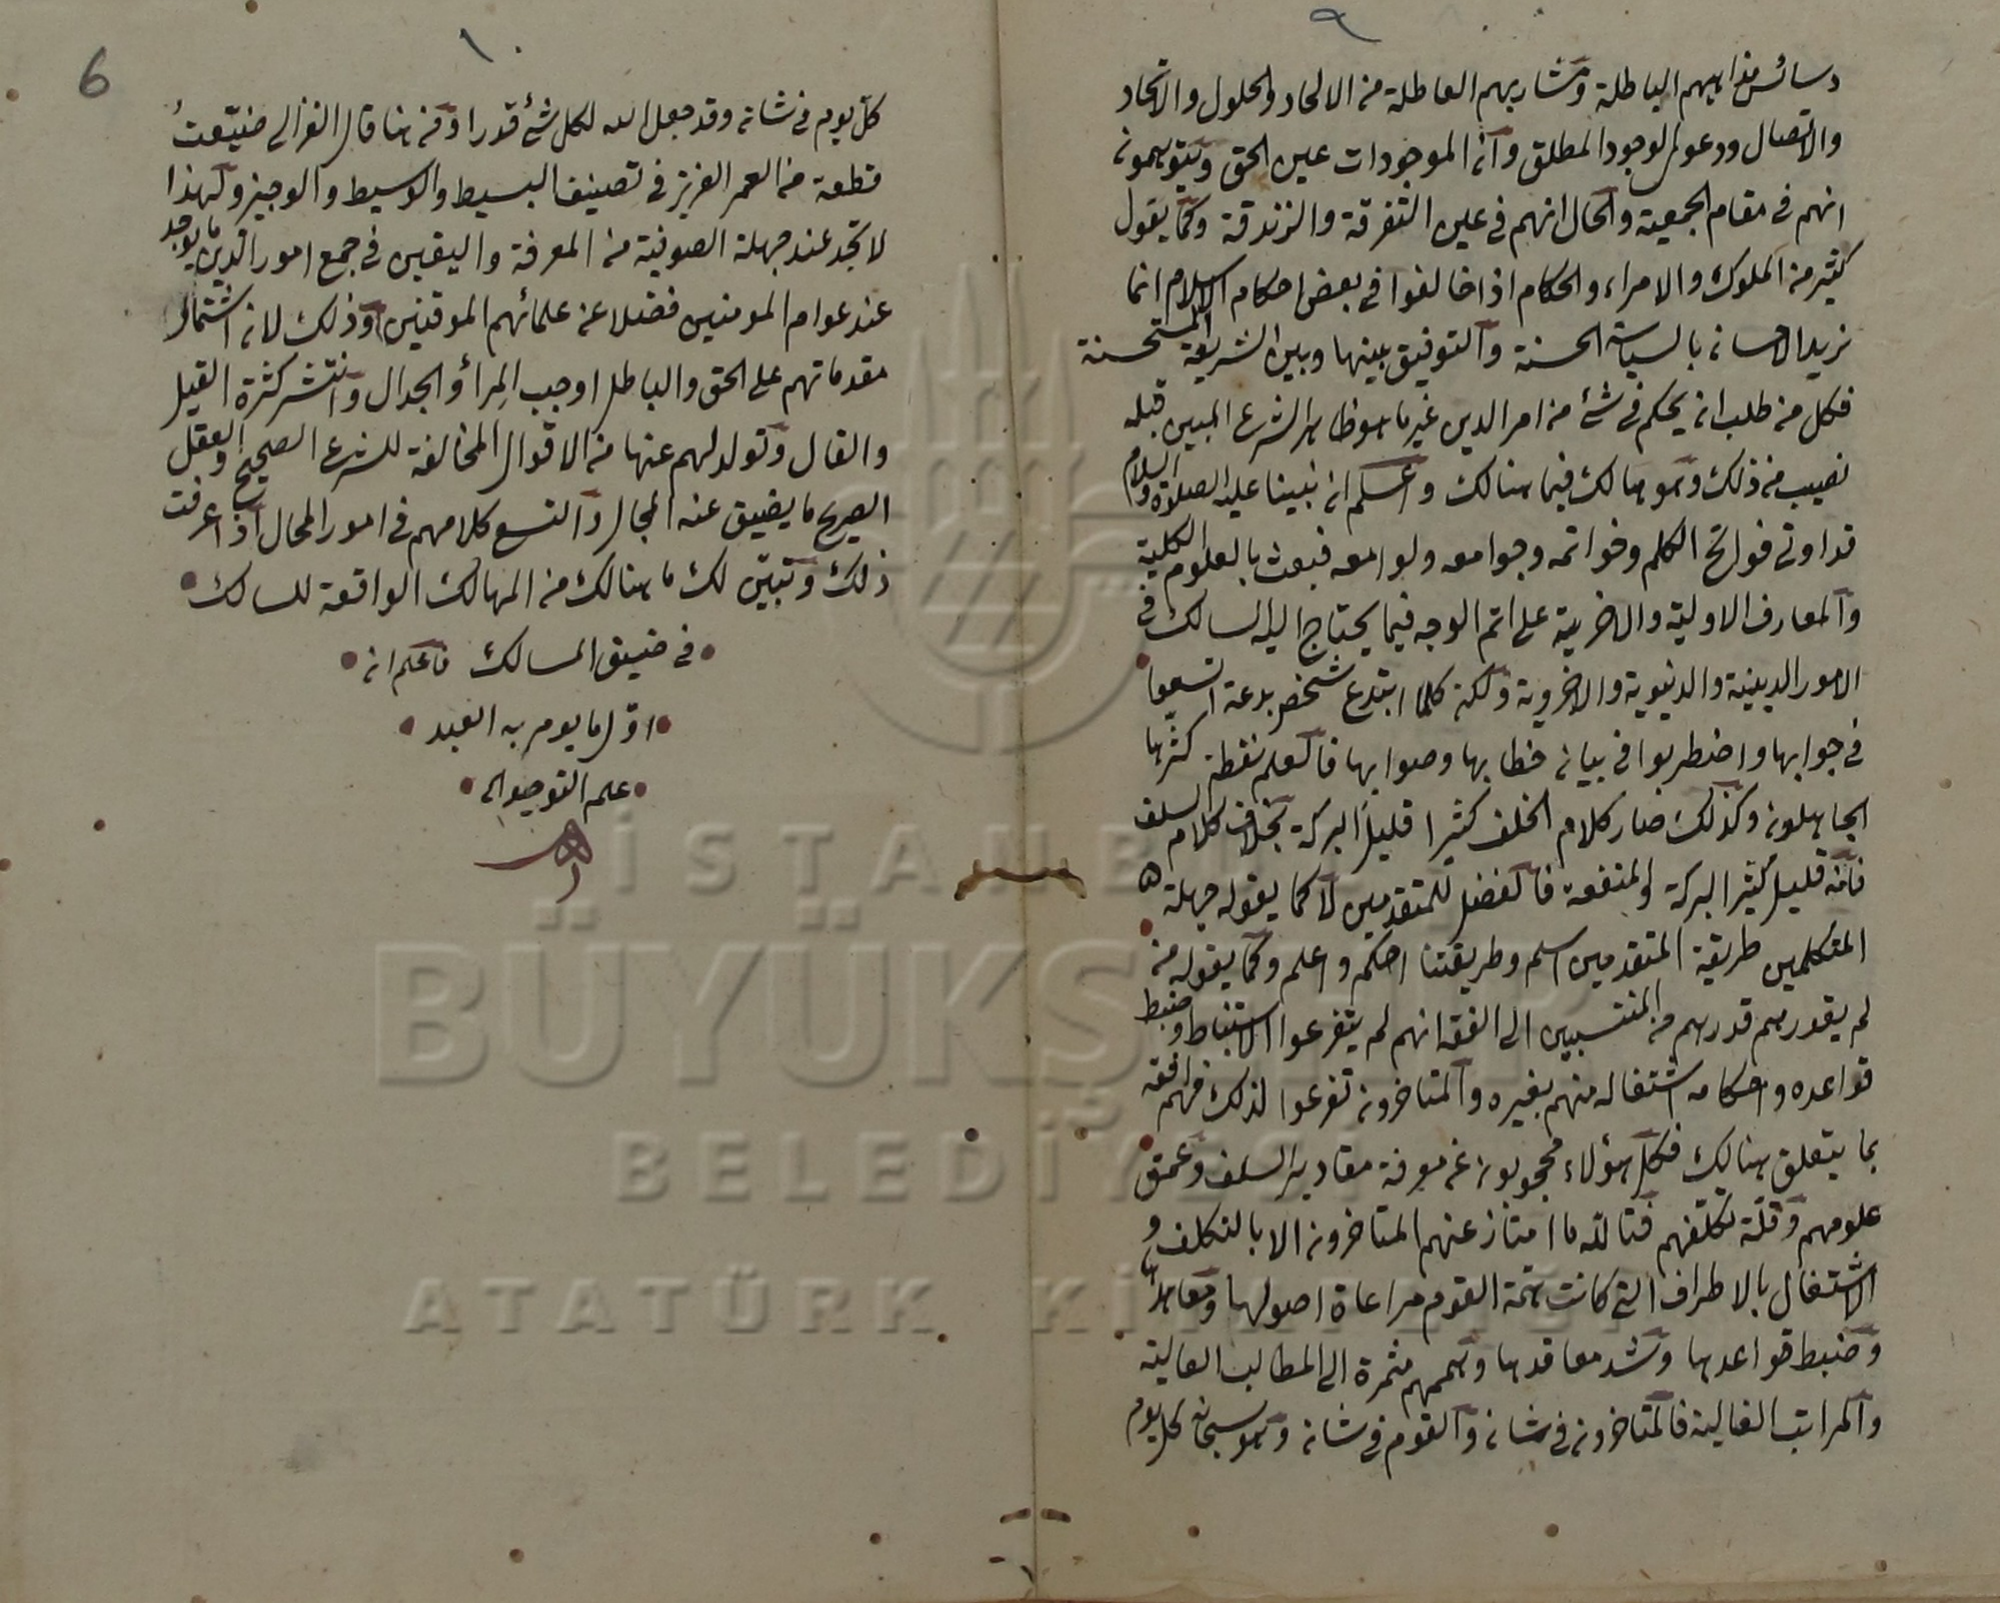 ٩
دسائس مذاهبهم الباطلة ومشاربهم العاطلة من الالحاد والحلول والاتحاد
والاتصال ودعوى الوجود المطلق وان الموجودات عين الحق ويتوهمون
انهم في مقام الجمعية والحال انهم في عين التفرقة والزندقة وكما يقول
كثير من الملوك والامراء والحكام اذا خالفوا في بعض احكام الاسلام انما
نريد الاحسان بالسياسة الحسنة والتوفيق بينها وبين الشريعة المستحسنة
فكل من طلب ان يحكم في شئ من امر الدين غير ما هو ظاهر الشرع المبين قبله
نصيب من ذلك وهو هالك فيما هنالك واعلم ان نبينا عليه الصلاة والسلام
قد اوتي فواتح الكلم وخواتمه وجوامعه ولوامعه فبعث بالعلوم الكلية
والمعارف الاولية والاخرية على اتم الوجه فيما يحتاج اليه السالك في
الامور الدينية والدنيوية والاخروية ولكن كلما ابتدع شخص بدعة اتسعوا
في جوابها واضطربوا في بيان خطابها وصوابها فالعلم نقطة كثرها
الجاهلون وكذلك صار كلام الخلف كثيرا قليل البركة بخلاف كلام السلف
فانه قليل كثير البركة والمنفعة فالفضل للمتقدمين لا كما يقوله جهلة
المتكلمين طريقة المتقدمين اسلم وطريقتنا احكم واعلم وكما يقوله من
لم يقدرهم قدرهم من المنتسبين الى الفقه انهم لم يتفرعوا الاستنباط وضبط
قواعده واحكامه اشتغاله منهم بغيره والمتاخرون تفرعوا لذلك فهم افقه
بما يتعلق هنالك فكل هؤلاء محجوبون عن معرفة مقادير السلف وعمق
علومهم وقلة تكلفهم فتالله ما امتاز عنهم المتاخرون الا بالتكلف و
الاشتغال بالاطراف التي كانت همة القوم مراعاة اصولها ومعاهدها
وضبط قواعدها وشد معاقدها وهممهم مثمرة الى المطالب العالية
والمراتب الغالية فالمتاخرون في شان والقوم في شان وهو سبحانه كل يوم
١٠
6
كل يوم في شان وقد جعل الله لكل شئ قدرا ومن هنا قال الغزالي ضيعت
قطعة من العمر العزيز في تصنيف البسيط والوسيط والوجيز ولهذا
لا تجد عند جهلة الصوفية من المعرفة واليقين في جمع امور الدين ما يوجد
عند عوام المومنين فضلا عن علمائهم الموقنين وذلك لان اشتمال
مقدماتهم على الحق والباطل اوجب المراء والجدال وانتشر كثرة القيل
والقال وتولد لهم عنها من الاقوال المخالفة للشرع الصحيح والعقل
الصريح ما يضيق عنه المجال واتسع كلامهم في امور المحال اذا عرفت
ذلك وتبين لك ما هنالك من المهالك الواقعة للسالك
في ضيق المسالك فاعلم ان
اول ما يومر به العبد
علم التوحيد الى